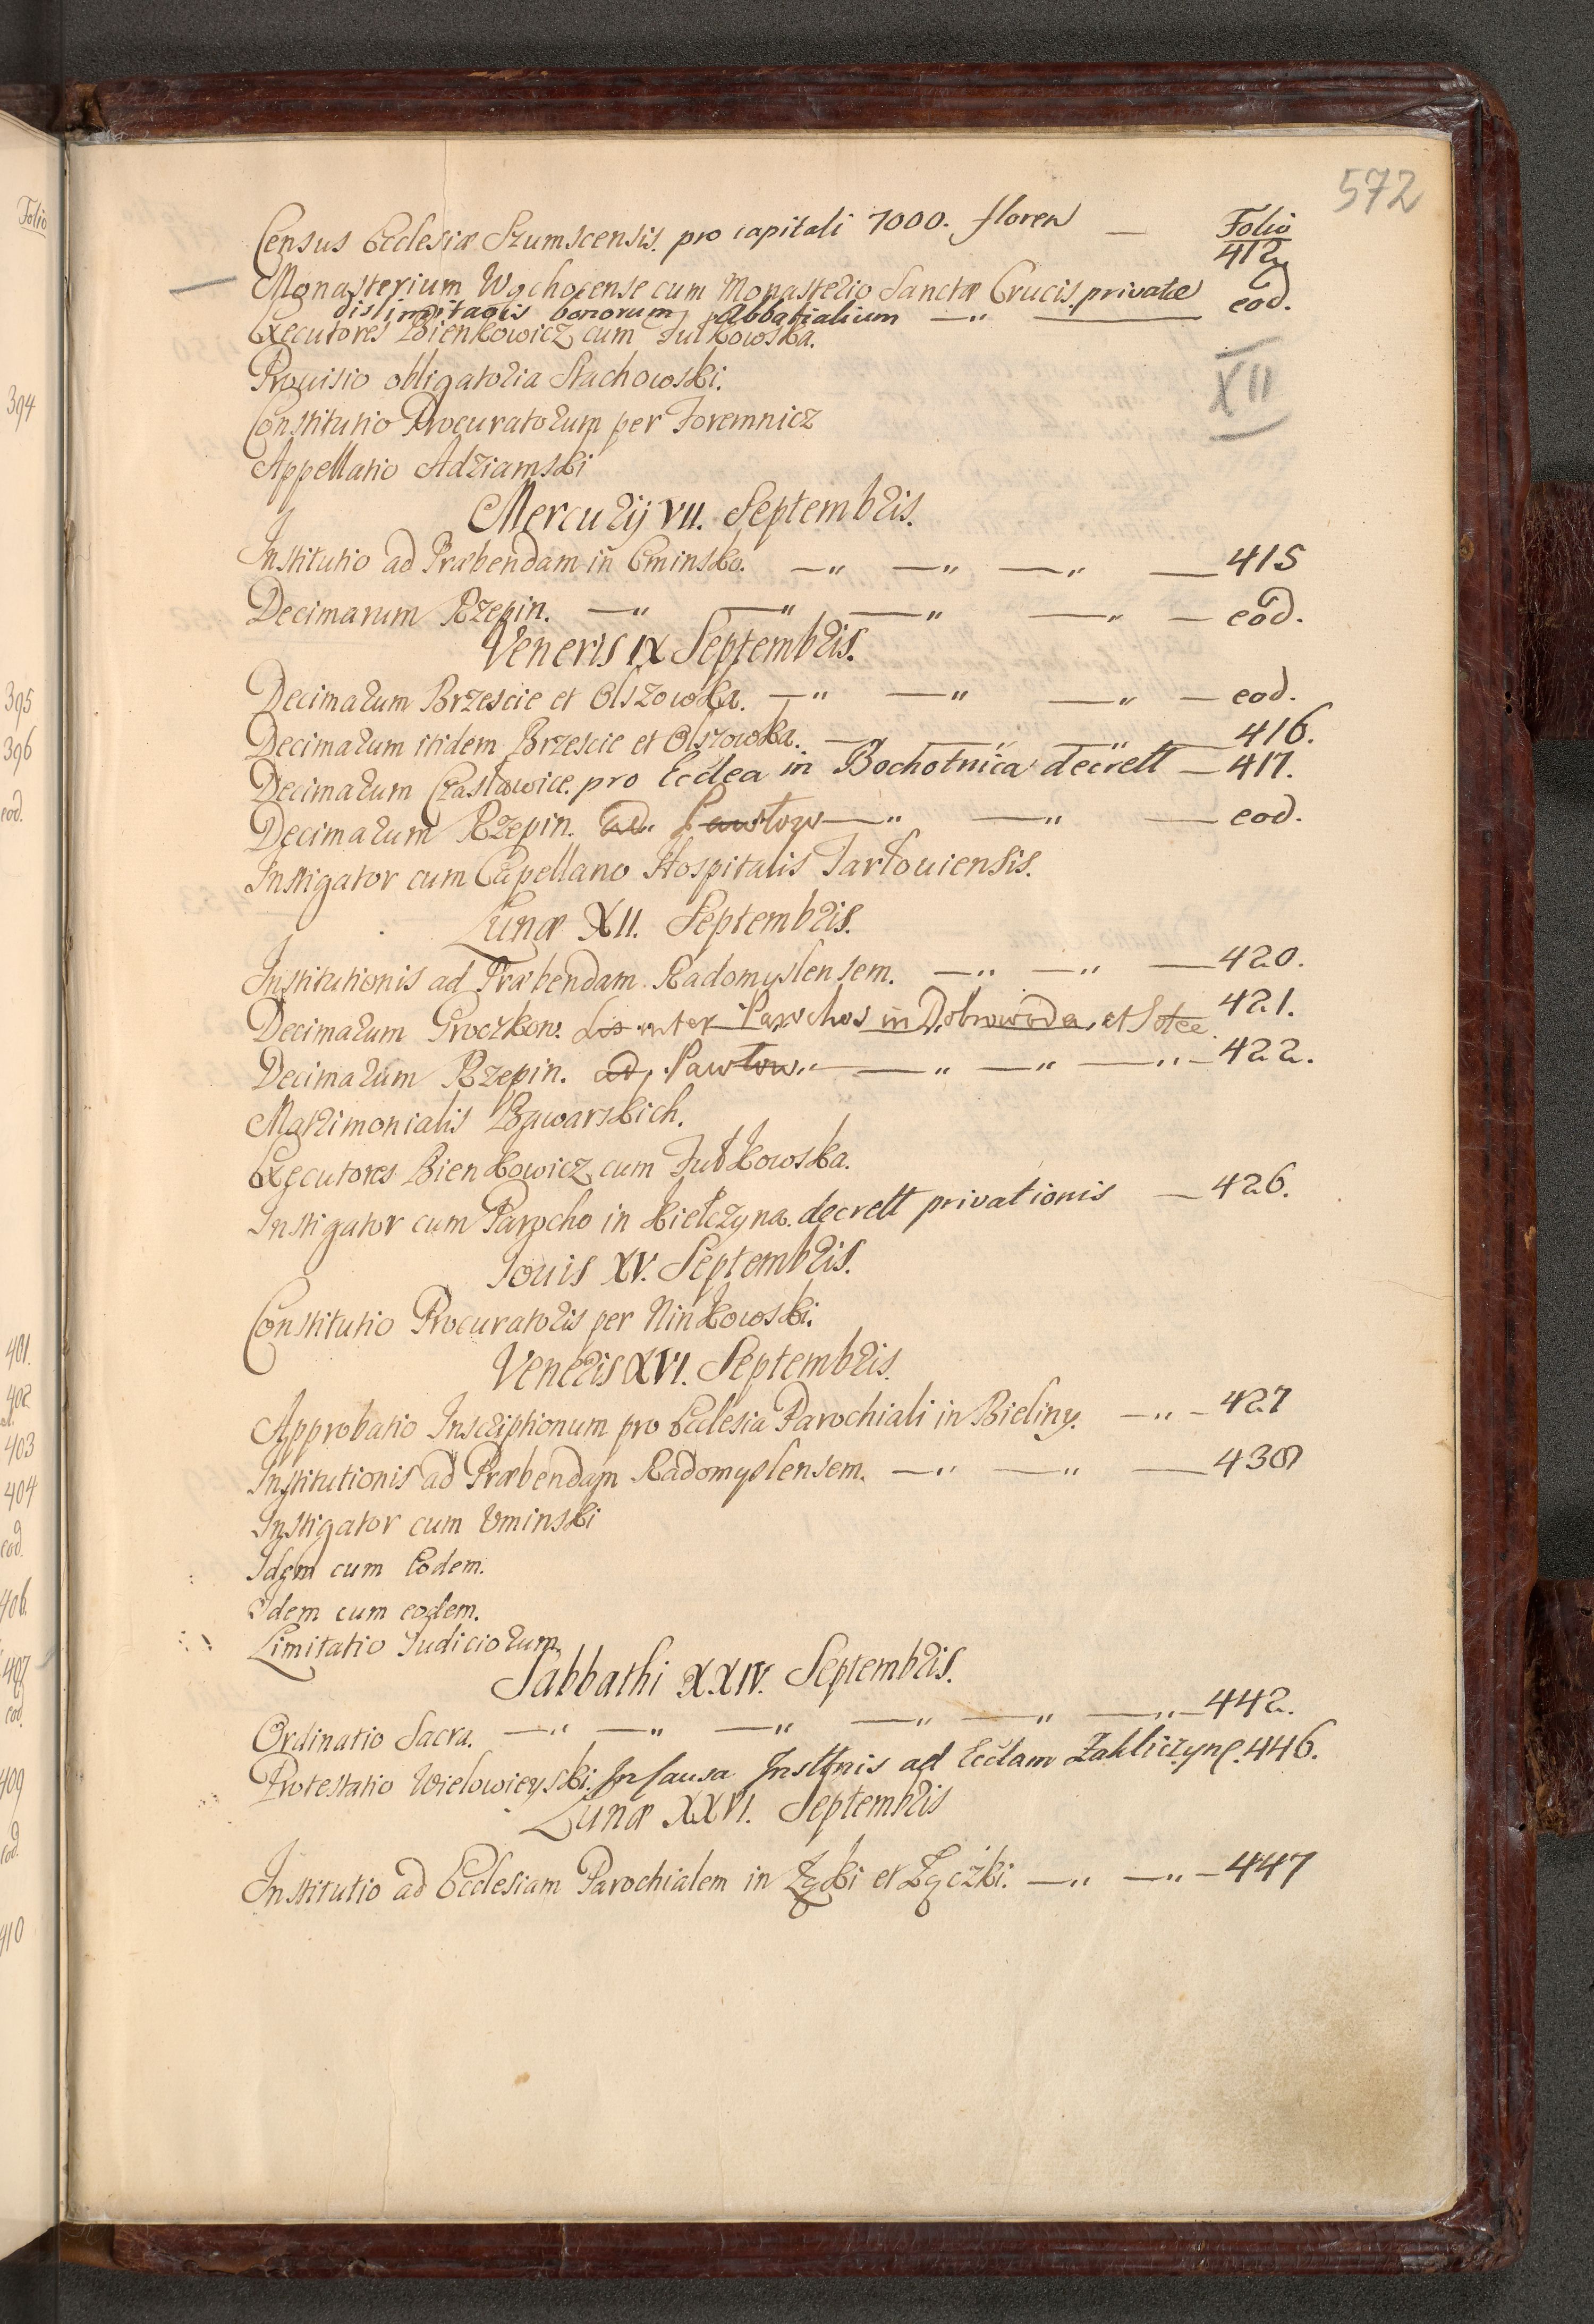 572
Folio
Census Ecclesiæ Szumscensis. pro capitali 7000. floren — 412
Monasterium Wąchocense cum Monasterio Sanctæ Crucis. privatæ eod.
dislimitaõis bonorum Abbatialium
Executores Bienkowicz cum Jułkowska.
Prouisio obligatoria Stachowski.
XII
Constitutio Procuratorum per Foremnicz
Appellatio Adziamski
Mercurij VII. Septembris.
Institutio ad Præbendam in Cminsko. 415
Decimarum Rzepin. eod.
Veneris IX Septembris.
Decimarum Brzescie et Olszowka. eod.
Decimarum itidem Brzescie et Olszowka. 416.
Decimarum Czasławice. pro Ecclea in Bochotnica decrett — 417.
Decimarum Rzepin. ad Pawłow eod.
Instigator cum Capellano Hospitalis Tarłouiensis.
Lunæ XII. Septembris.
Institutionis ad Præbendam Radomyslensem. 420.
Decimarum Groczkow. Lis inter Parochos in Dobrowoda, et Sotce 421.
Decimarum Rzepin. ad Pawłow. 422.
Matrimonialis Bawarskich.
Executores Bienkowicz cum Jułkowska.
Instigator cum Parocho in Kiełczyna. decrett privationis — 426.
Jouis XV. Septembris.
Constitutio Procuratoris per Ninkowski.
Veneris XVI. Septembris.
Approbatio Inscriptionum pro Ecclesia Parochiali in Bieliny. 427
Institutionis ad Præbendam Radomyslensem. 430
Instigator cum Uminski
Idem cum Eodem.
Idem cum eodem.
Limitatio Judiciorum
Sabbathi XXIV. Septembris.
Ordinatio Sacra. 442.
Protestatio Wielowieyski. In Causa Insttnis ad Ecclam Zakliczyne. 446.
Lunæ XXVI. Septembris
Institutio ad Ecclesiam Parochialem in Łąki et Łączki. 447
Folio
394
395
396
eod.
401.
402
403
404
eod.
406.
407
eod.
409
eod.
410